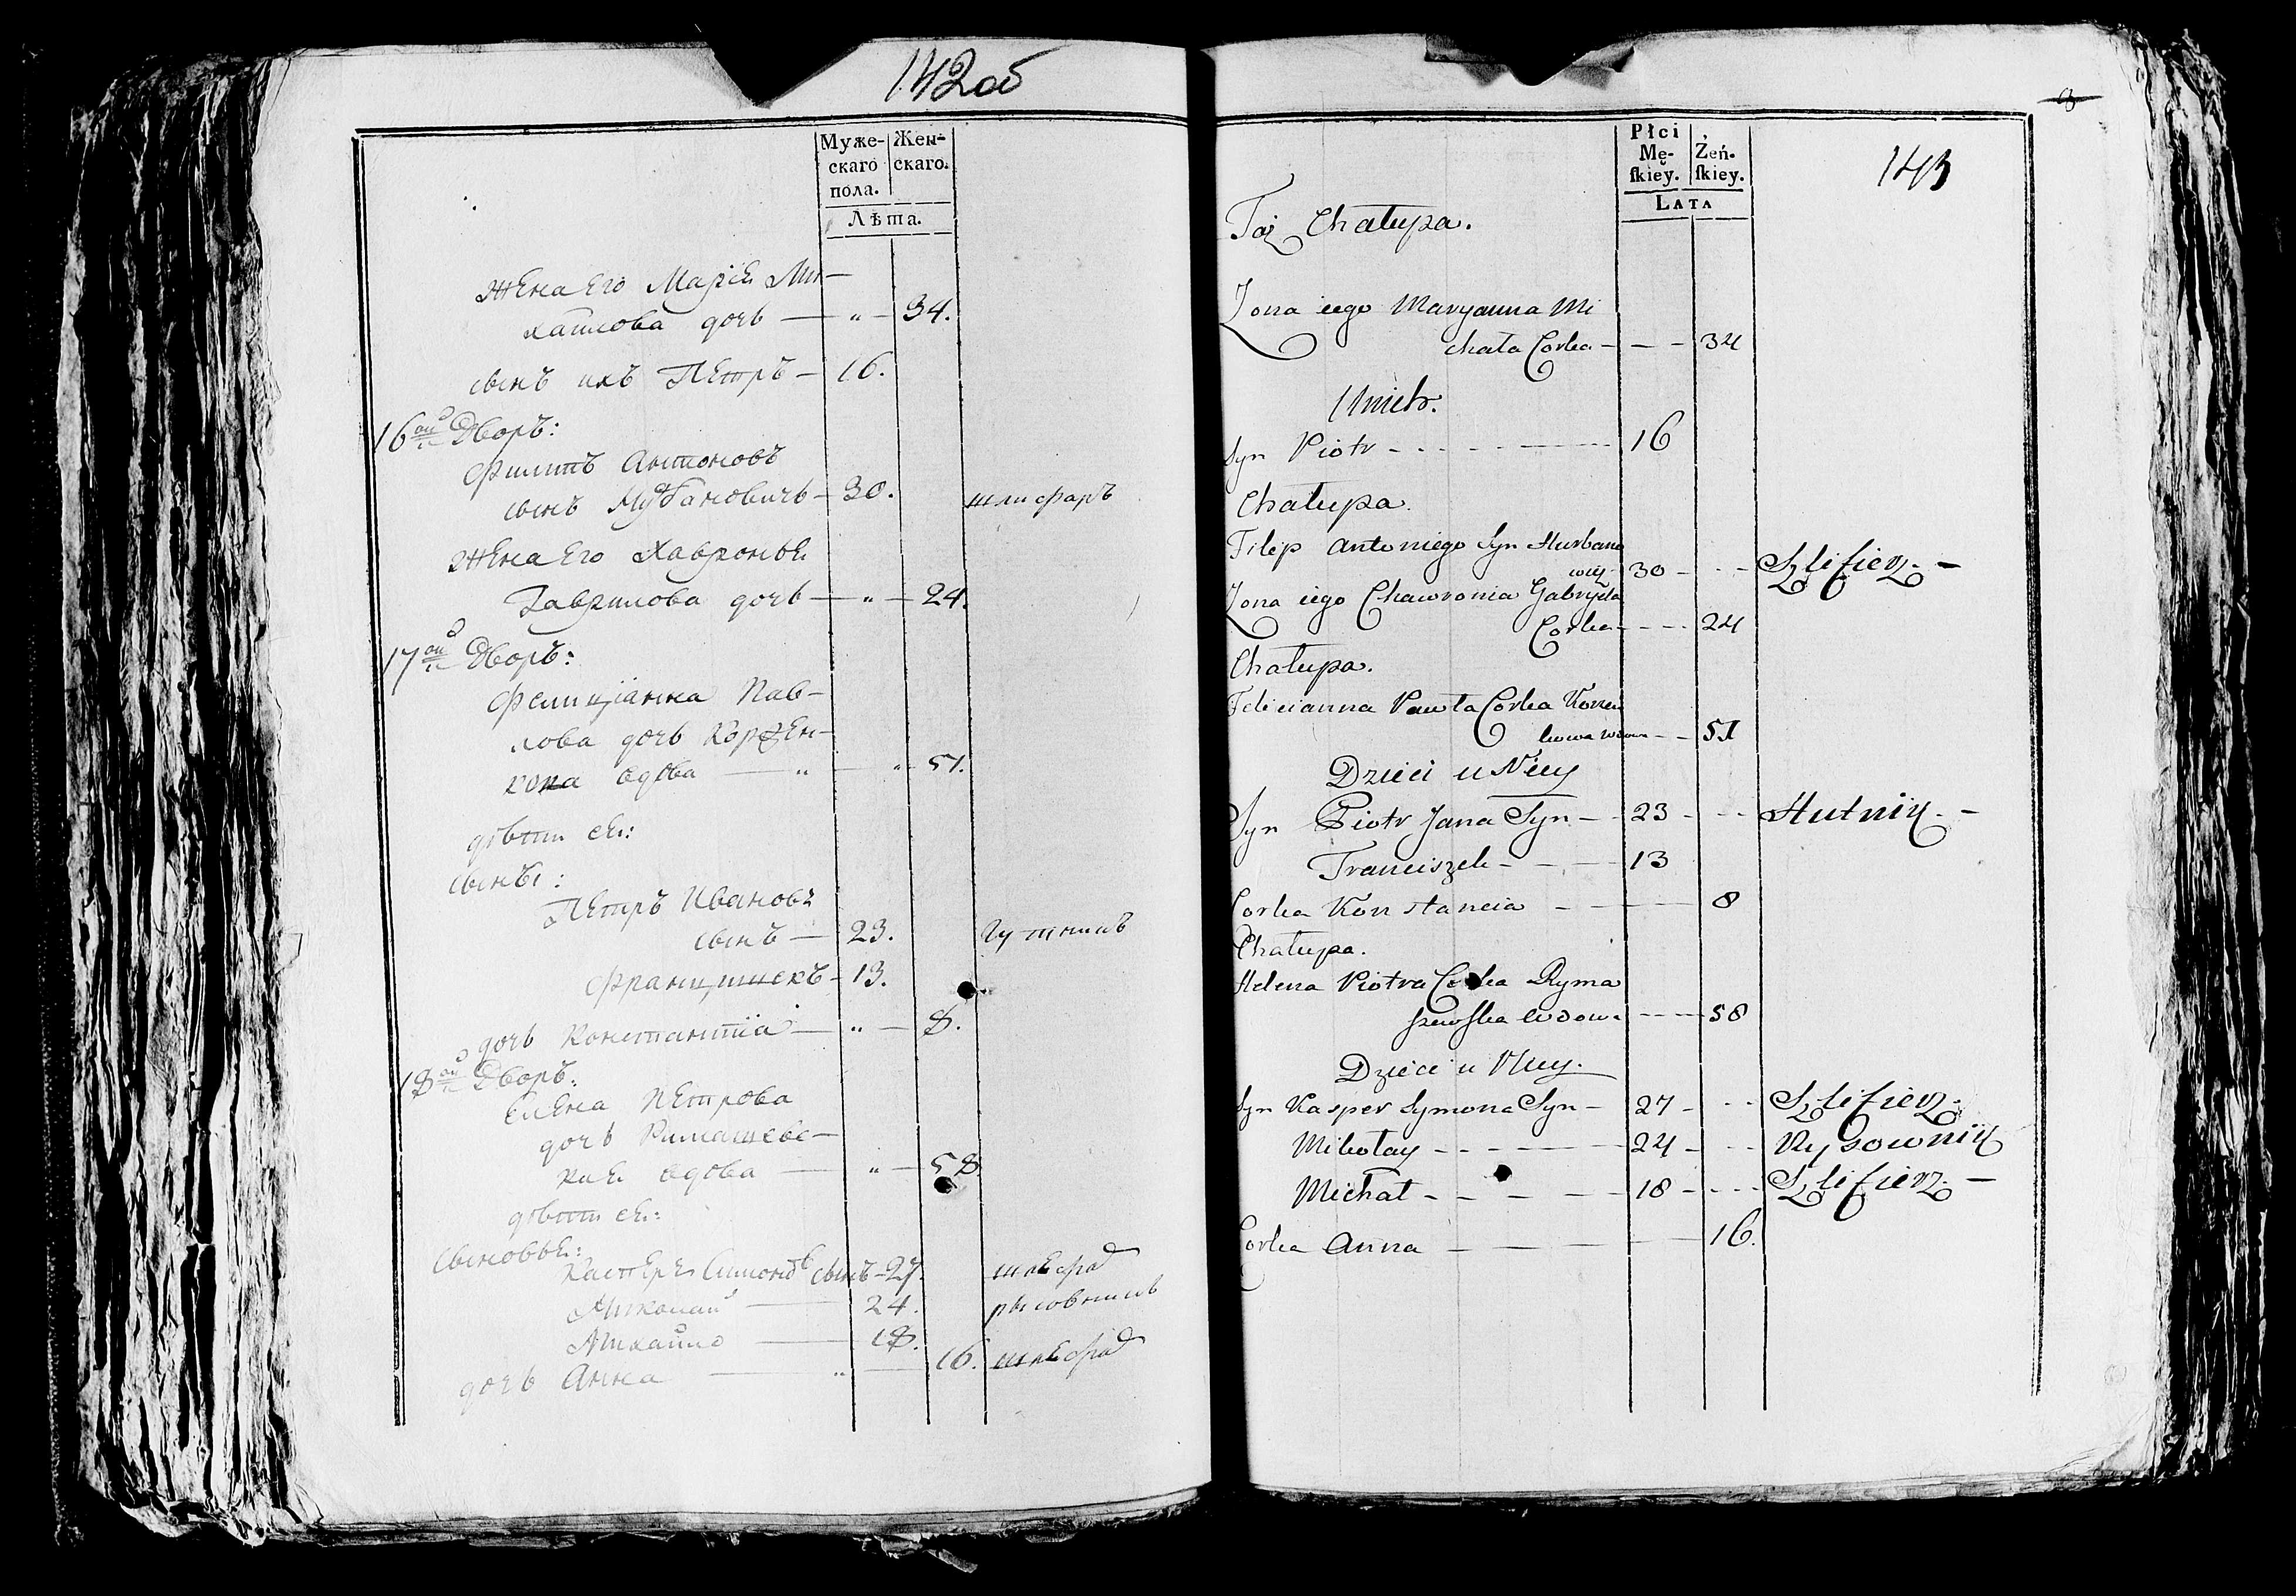 142об
Муже-
скаго
пола.
Жен-
скаго.
Лѣта.
жена его Марiя Ми-
хайлова дочь — " — 34.
сынъ ихъ Петръ — 16.
16ой Дворъ:
Филипъ Антоновъ
сынъ — 30. шлифаръ
жена его Хавронья
Гаврилова дочь — " — 24.
17ой Дворъ:
Фелицiанна Пав-
лова дочь Корзен-
кова вдова — " — " 51.
дѣти ея:
сынъ:
Петръ Ивановъ
сынъ — 23. гутникъ
Францишекъ — 13.
дочь Константiа — " — 8.
18ой Дворъ:
Елена Петрова
дочь Римашевс-
кая вдова — " — 58
дѣти ея:
сыновья:
Касперъ Симоновъ сынъ — 27.
Миколай — 24. рысовникъ
Михайло — 18.
дочь Анна — " — 16.
3
143
Płci
Mę-
ſkiey.
Żeń-
ſkiey.
Lata
Taż Chałupa.
Zona iego Maryanna Mi
chała Corka - - - 34
Unich.
Syn Piotr - - - - 16
Chałupa.
Filip Antoniego Syn Hurbano
wicz 30 - - - Szlifierz. -
Zona iego Chawronia Gabryela
Corka - - - 24
Chałupa.
Felicianna Pawła Corka Korzen
kowa wdowa - - 51
Dzieci u Niey
Syn Piotr Jana Syn - 23 - - - Hutnik. -
Franciszek - - - 13
Corka Konstancia - - - 8
Chałupa.
Helena Piotra Corka Ryma
szewſka wdowa - - - 58
Dzieci u Niey.
Syn Kasper Symona Syn - 27 - - - Szlifierz.
Mikołay - - - - 24 - - - Rysownik
Michał - - - - 18 - - - Szlifierz. -
Corka Anna - - - - 16.